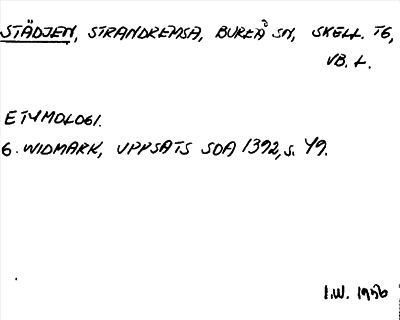 STÄDJEN, STRANDREMSA, BUREÅ SN, SKELL. TG,
VB. L.
ETYMOLOGI.
G. WIDMARK, UPPSATS SOA 1392, S. 49.
I.W. 1956